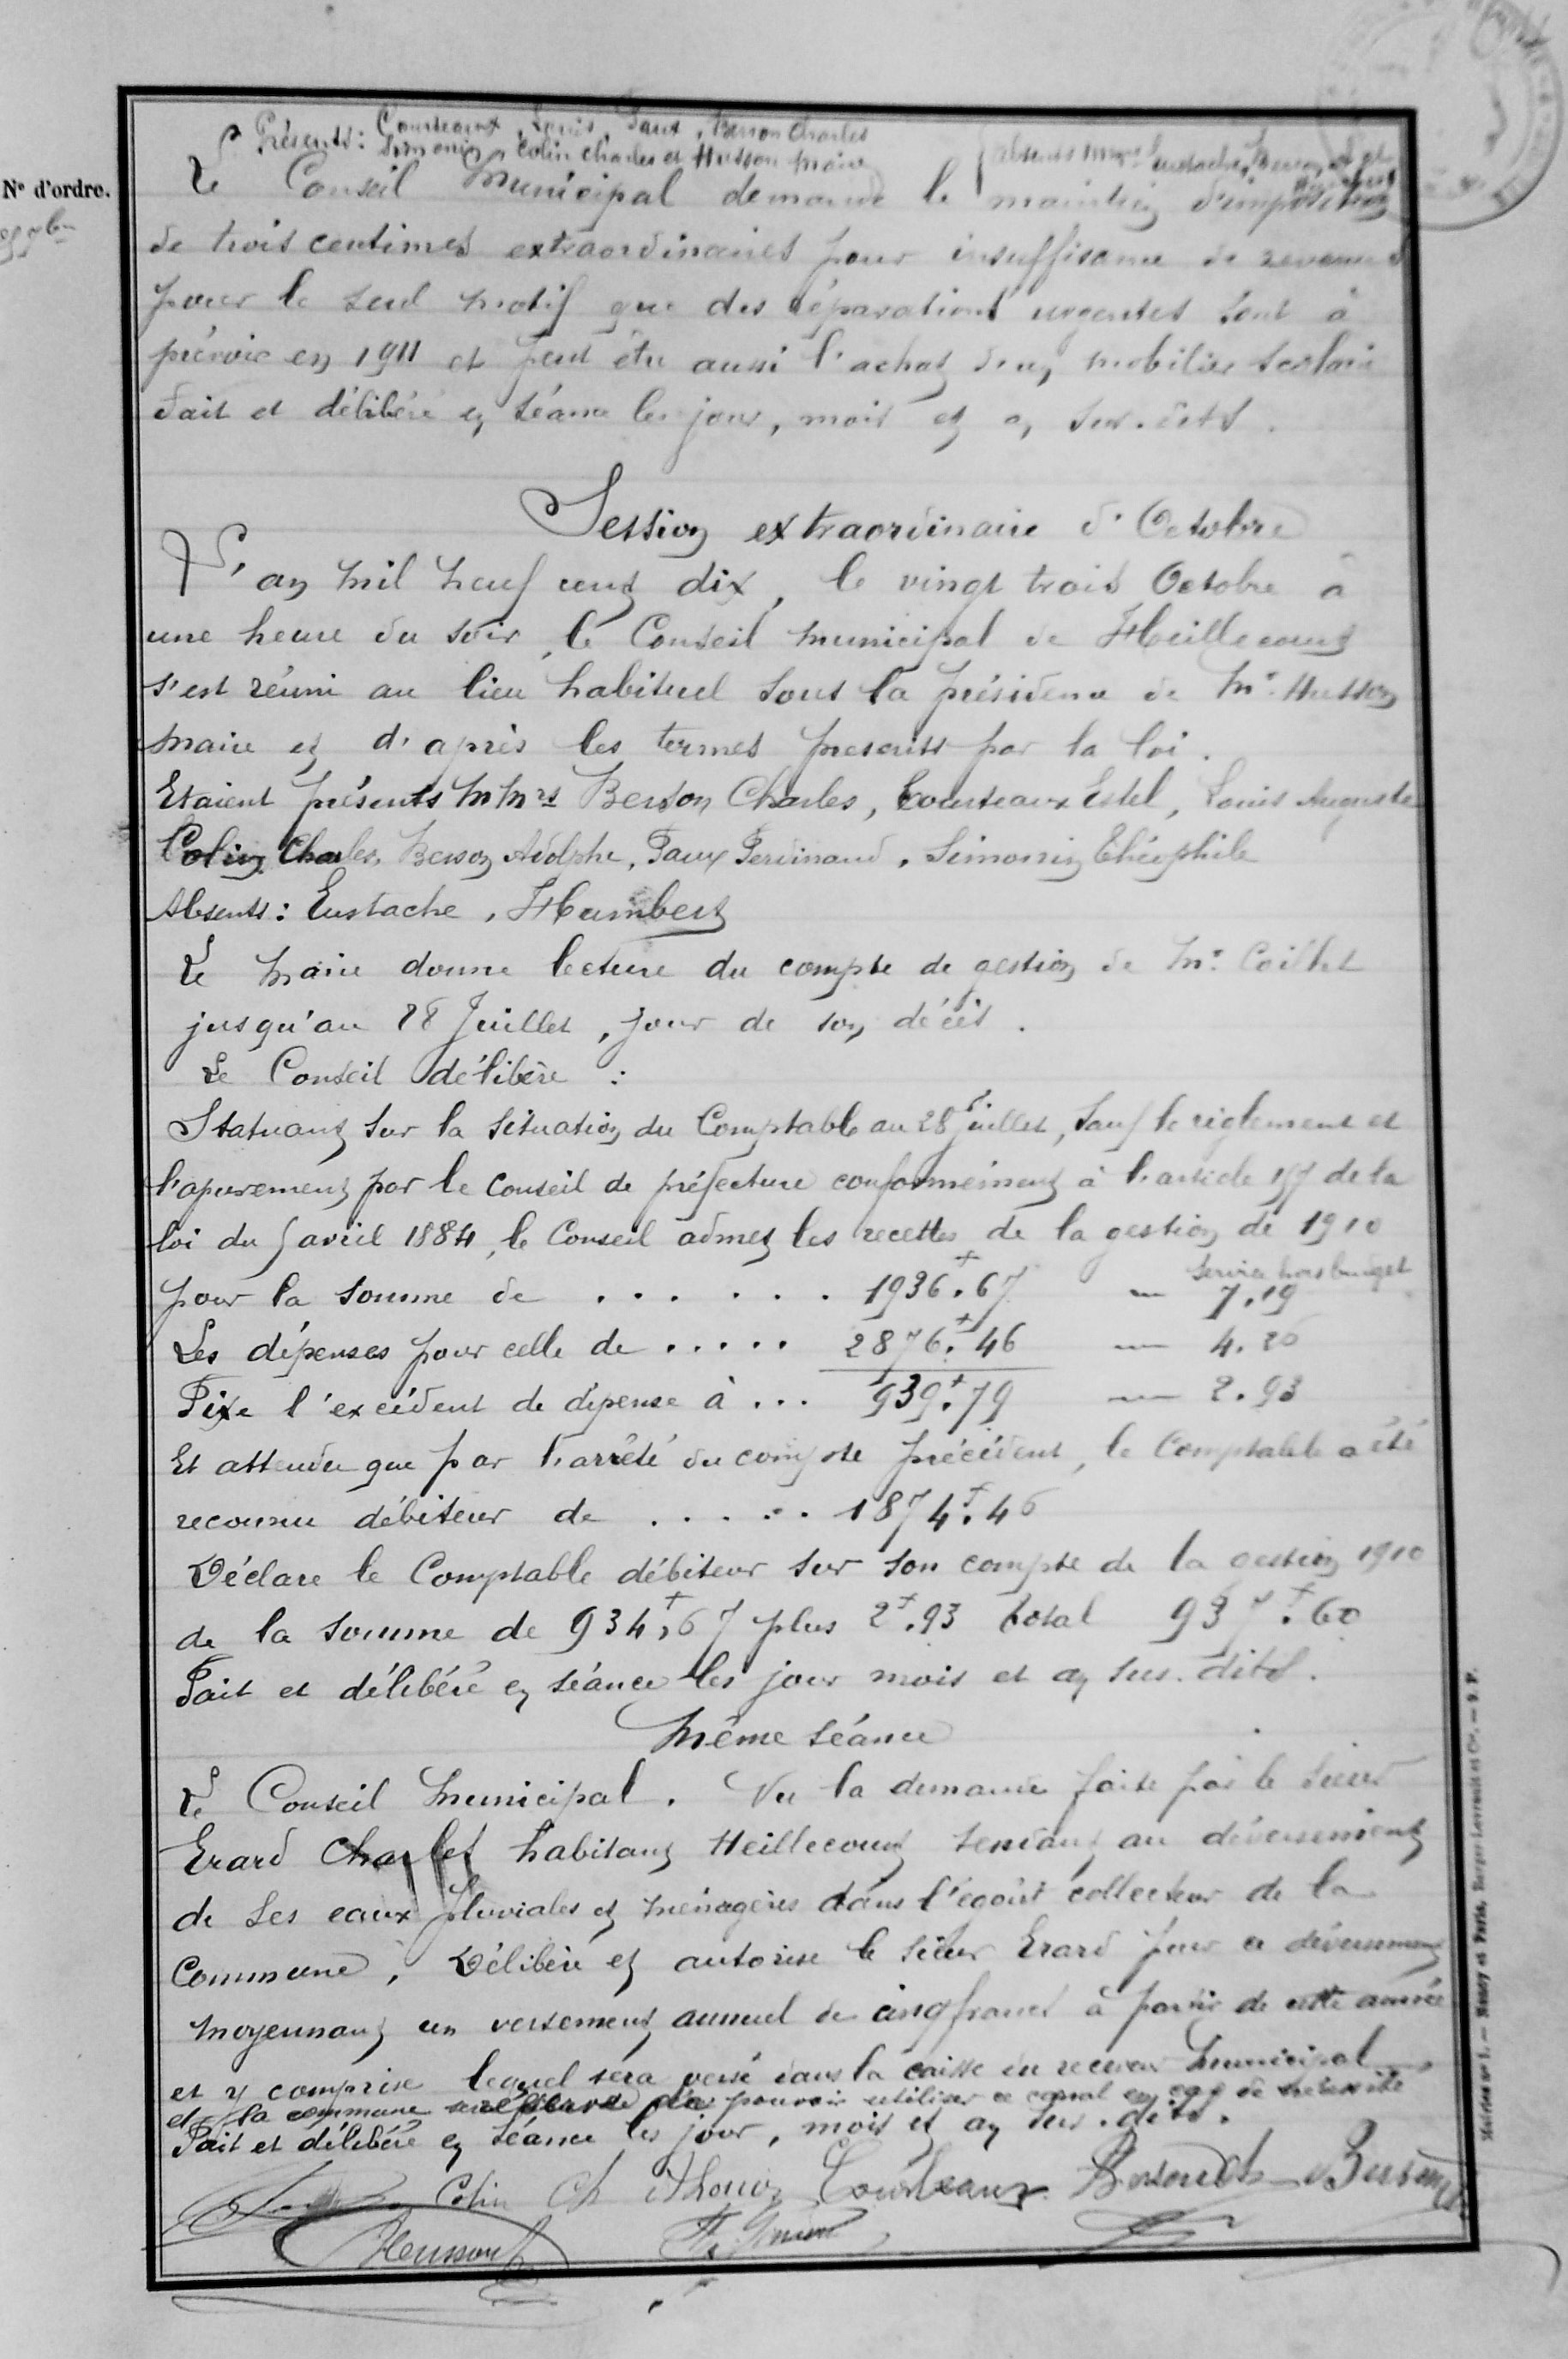 Présents: Courteaux, Louis, Faux, Berson Charles
Simonin, Colin Charles et Husson maire
absents Mrs Eustache, Berson A et
Humbert
N° d'ordre.
Le Conseil Municipal demande le maintien d'imposition
de trois centimes extraordinaires pour insuffisance de revenus
pour le seul motif que des réparations urgentes sont à
prévoir en 1911 et peut être aussi l'achat d'un mobilier scolaire
Fait et délibéré en séance les jour, mois et an sus-dits.
Session extraordinaire d'Octobre
L'an mil neuf cent dix, le vingt trois Octobre à
une heure du soir, le Conseil municipal de Heillecourt
s'est réuni au lieu habituel sous la présidence de Mr. Husson
maire et d'après les termes prescrits par la loi.
Etaient présents MMrs Berson Charles, Courteaux Estel, Louis Auguste
Colin Charles, Berson Adolphe, Faux Ferdinand, Simonin Théophile
Absents: Eustache, Humbert
Le Maire donne lecture du compte de gestion de Mr. Caillet
jusqu'au 28 Juillet, jour de son décès.
Le Conseil délibère :
Statuant sur la situation du Comptable au 28 juillet, sauf le règlement et
l'apurement par le Conseil de préfecture conformément à l'article 157 de la
loi du 5 avril 1884, le Conseil admet les recettes de la gestion de 1910
service hors budget
pour la somme de . . . . . . 1936f.67 — 7.19
Les dépenses pour celle de . . . . . 2876f.46 — 4.26
Fixe l'excédent de dépense à . . . 939f.79 — 2.93
Et attendu que par l'arrêté du compte précédent, le Comptable a été
reconnu débiteur de . . . . . 1874f.46
Déclare le Comptable débiteur sur son compte de la gestion 1910
de la somme de 934f,67 plus 2f.93 total 937f.60
Fait et délibéré en séance les jour mois et an sus-dits.
Même séance
Le Conseil Municipal. Vu la demande faite par le sieur
Erard Charles habitant Heillecourt tendant au déversement
de ses eaux pluviales et ménagères dans l'égoût collecteur de la
Commune, Délibère et autorise le sieur Erard pour ce déversement
moyennant un versement annuel de cinq francs à partir de cette année
et y comprise lequel sera versé dans la caisse du receveur Municipal
et la commune se réserve de pouvoir utiliser ce canal en cas de nécessité
Fait et délibéré en séance les jour, mois et an sus-dits.
Colin Ch A Louis Courteaux Berson Ch Berson
Husson
Nancy et Paris, Berger-Levrault et Cie.